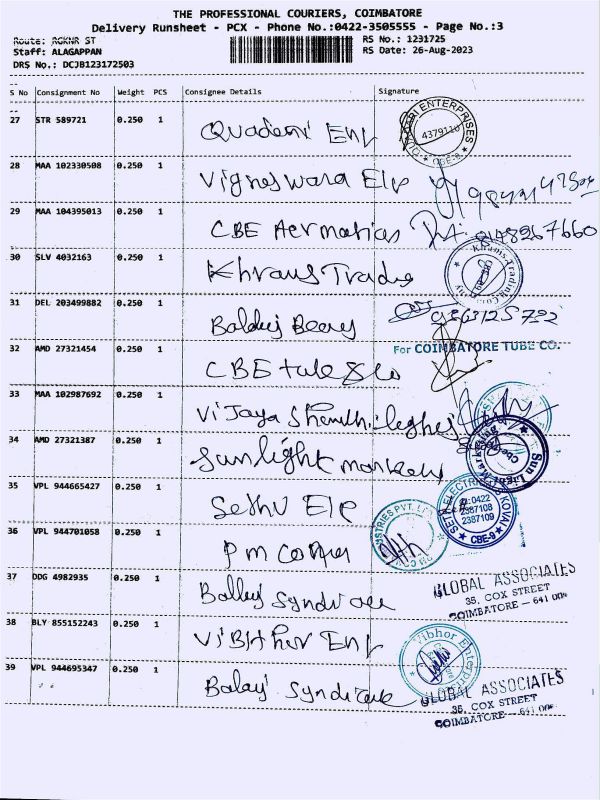 THE PROFESSIONAL COURIERS, COIMBATORE
Delivery Runsheet - PCX - Phone No.:0422-3505555 - Page No.:3
Route: RGKNR ST
RS No.: 1231725
Staff: ALAGAPPAN
RS Date: 26-Aug-2023
DRS No,: DCJB123172503
S No Consignment No Weight PCS Consignee Details Signature
27 STR 589721 0.250 1 Quaderi Ent ENTERPRISES 4379110 CBE-9
28 MAA 102330508 0.250 1 Vigneswara Ele
29 MAA 104395013 0.250 1 CBE 8148267660
30 SLV 4032163 0.250 1 Khrams Trading Khrams Trading Company
31 DEL 203499882 0.250 1
32 AMD 27321454 0.250 1 CBE tube & Co For COIMBATORE TUBE CO.
33 MAA 102987692 0.250 1 Vijaya
34 AMD 27321387 0.250 1 Sunlight Sun Light Marketing Cbe
35 VPL 944665427 0.250 1 Sethu Ele ELECTRICALS KOVAI ✆:0422 2387108 2387109 CBE-9
36 VPL 944701058 0.250 1 PM INDUSTRIES PVT. LTD
37 DDG 4982935 0.250 1 Syndicate GLOBAL ASSOCIATES
35, COX STREET
COIMBATORE - 641 001
38 BLY 855152243 0.250 1 VIBHhor Ent Vibhor Enterprises
39 VPL 944695347 0.250 1 Balaji Syndicate GLOBAL ASSOCIATES
35, COX STREET
COIMBATORE - 641 001